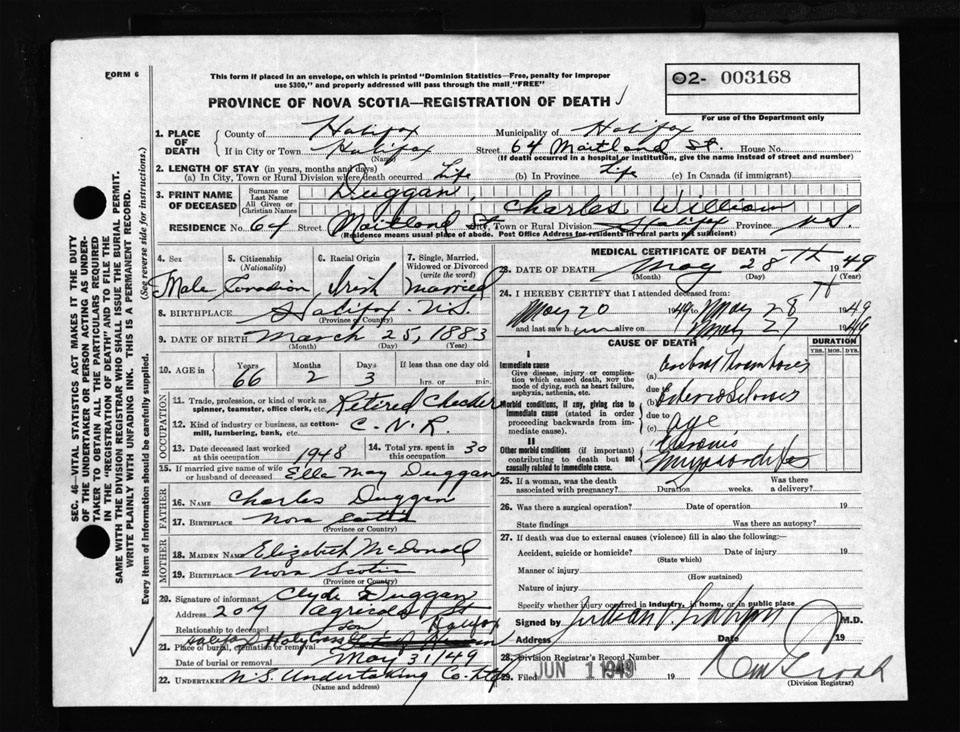 FORM 6
This form if placed in an envelope, on which is printed "Dominion Statistics—Free, penalty for improper
use $300," and properly addressed will pass through the mail "FREE"
O2- 003168
For use of the Department only
PROVINCE OF NOVA SCOTIA—REGISTRATION OF DEATH
1. PLACE OF DEATH { County of Halifax Municipality of Halifax
If in City or Town Halifax Street 64 Maitland St. House No.
(Name) (If death occurred in a hospital or institution, give the name instead of street and number)
2. LENGTH OF STAY (in years, months and days)
(a) In City, Town or Rural Division where death occurred Life (b) In Province Life (c) In Canada (if immigrant)
3. PRINT NAME OF DECEASED { Surname or Last Name Duggan,
All Given or Christian Names Charles William
RESIDENCE No. 64 Street Maitland St. City, Town or Rural Division Halifax Province N.S.
(Residence means usual place of abode. Post Office Address for residents in rural parts not sufficient)
4. Sex 5. Citizenship (Nationality) 6. Racial Origin 7. Single, Married, Widowed or Divorced (write the word)
Male Canadian Irish Married
8. BIRTHPLACE Halifax N.S.
(Province or Country)
9. DATE OF BIRTH March 25, 1883
(Month) (Day) (Year)
10. AGE in Years Months Days If less than one day old
66 2 3 hrs. or min.
OCCUPATION
11. Trade, profession, or kind of work as
spinner, teamster, office clerk, etc. Retired Checker
12. Kind of industry or business, as cotton-
mill, lumbering, bank, etc. C.N.R.
13. Date deceased last worked at this occupation 1948 14. Total yrs. spent in this occupation 30
15. If married give name of wife
or husband of deceased Ella May Duggan
FATHER
16. Name Charles Duggan
17. Birthplace Nova Scotia
(Province or Country)
MOTHER
18. Maiden Name Elizabeth McDonald
19. Birthplace Nova Scotia
(Province or Country)
20. Signature of informant Clyde Duggan
Address 207 Agricola St Halifax
Relationship to deceased son
21. Place of burial, cremation or removal Halifax Holy Cross
Date of burial or removal May 31/49
22. UNDERTAKER N.S. Undertaking Co. Ltd
(Name and address)
MEDICAL CERTIFICATE OF DEATH
23. DATE OF DEATH May 28 TH 1949
(Month) (Day) (Year)
24. I HEREBY CERTIFY that I attended deceased from:
May 20 1949 to May 28 TH 1949
and last saw him alive on May 27 19
CAUSE OF DEATH DURATION
YRS. MOS. DYS.
I
Immediate cause (a) Thrombosis
Give disease, injury or complica-
tion which caused death, not the
mode of dying, such as heart failure,
asphyxia, asthenia, etc.
due to
Morbid conditions, if any, giving rise to
immediate cause (stated in order
proceeding backwards from im-
mediate cause). (b)
due to
(c) age
II
Other morbid conditions (if important)
contributing to death but not
causally related to immediate cause. Chronic Myocarditis
25. If a woman, was the death Was there
associated with pregnancy? Duration weeks. a delivery?
26. Was there a surgical operation? Date of operation 19
State findings Was there an autopsy?
27. If death was due to external causes (violence) fill in also the following:—
Accident, suicide or homicide? Date of injury 19
(State which)
Manner of injury
(How sustained)
Nature of injury
Specify whether injury occurred in industry, in home, or in public place
Signed by M.D.
Address Date 19
28. Division Registrar's Record Number
29. Filed JUN 1 1949 19
(Division Registrar)
SEC. 46—VITAL STATISTICS ACT MAKES IT THE DUTY
OF THE UNDERTAKER OR PERSON ACTING AS UNDER-
TAKER TO OBTAIN ALL THE PARTICULARS REQUIRED
IN THE "REGISTRATION OF DEATH" AND TO FILE THE
SAME WITH THE DIVISION REGISTRAR WHO SHALL ISSUE THE BURIAL PERMIT.
WRITE PLAINLY WITH UNFADING INK. THIS IS A PERMANENT RECORD.
Every item of information should be carefully supplied. (See reverse side for instructions.)